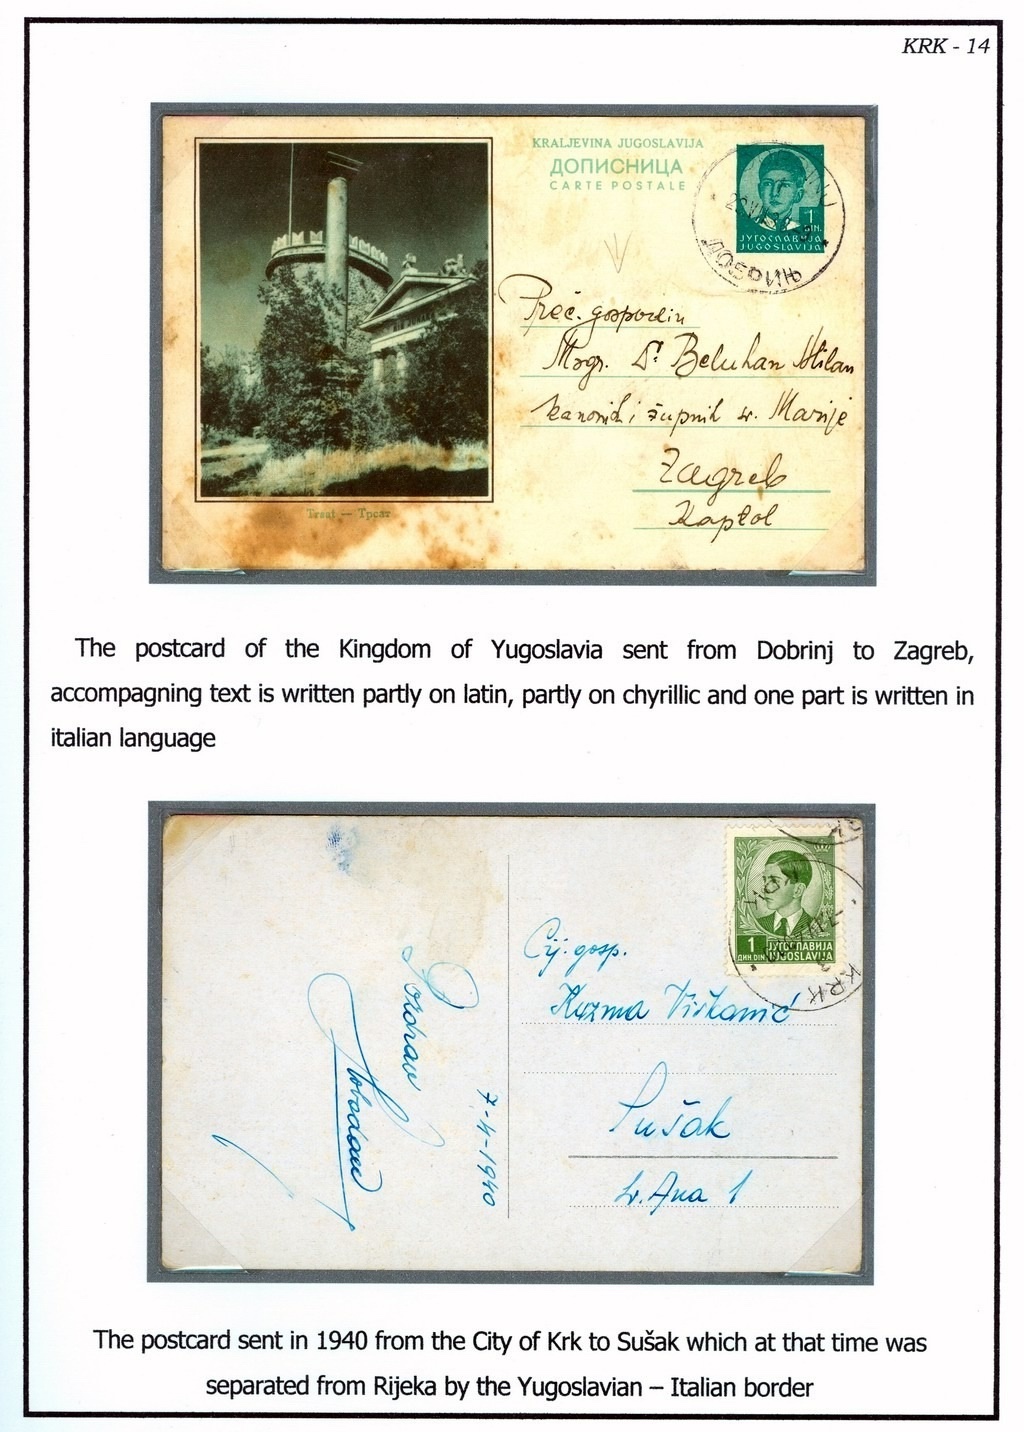 KRK - 14
KRALJEVINA JUGOSLAVIJA
ДОПИСНИЦА
CARTE POSTALE
1
DIN.
ЈУГОСЛАВИЈА
JUGOSLAVIJA
ДОБРИЊ
Preč. gospodin
Msgr. Dr Beluhan Milan
kanonik i župnik sv. Marije
Zagreb
Kaptol
Trsat — Трсат
The postcard of the Kingdom of Yugoslavia sent from Dobrinj to Zagreb,
accompagning text is written partly on latin, partly on chyrillic and one part is written in
italian language
1
ДИН. DIN
ЈУГОСЛАВИЈА
JUGOSLAVIJA
KRK
Cij. gosp.
Kuzma
Sušak
sv. Ana 1
Pozdrav
7-4-1940
The postcard sent in 1940 from the City of Krk to Sušak which at that time was
separated from Rijeka by the Yugoslavian – Italian border